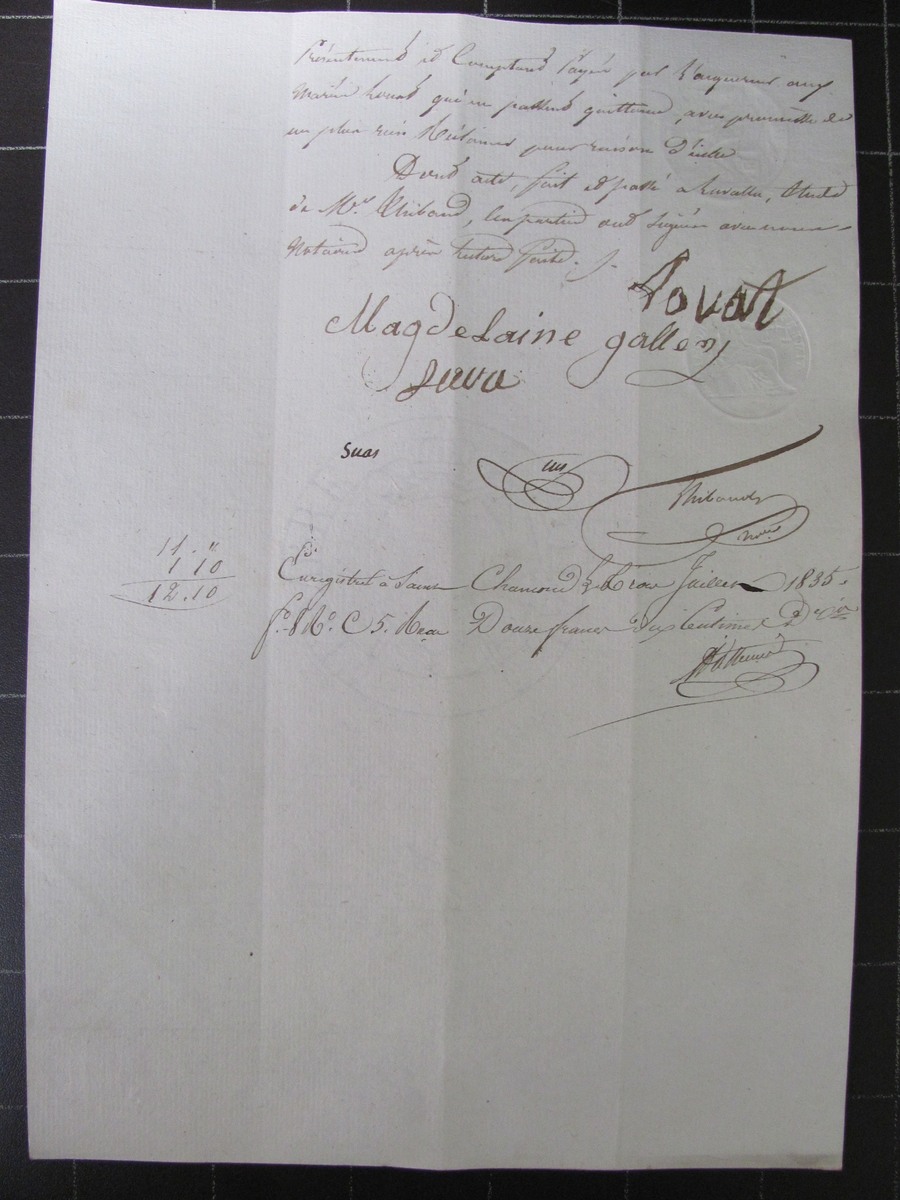 Présentement et Comptant Payée par l'acquereur aux
Mariés Louat qui en passent quittance, avec promesse de
ne plus rien Réclamer pour raison d'icelle
Dont acte, fait et passé a Lavalla, étude
de Me. Thibaud, les parties ont signées avec nous
Notaire après lecture faite.
Lovat
Magdelaine galley
Thibaud
Nore
11. "
1 10
12.10
Enregistré à Saint Chamond le trois Juillet 1835.
fo. 8 Ro. C 5. Reçu Douze francs dix Centimes